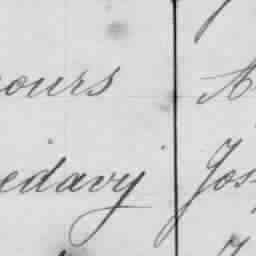 ours A
edavy Jos